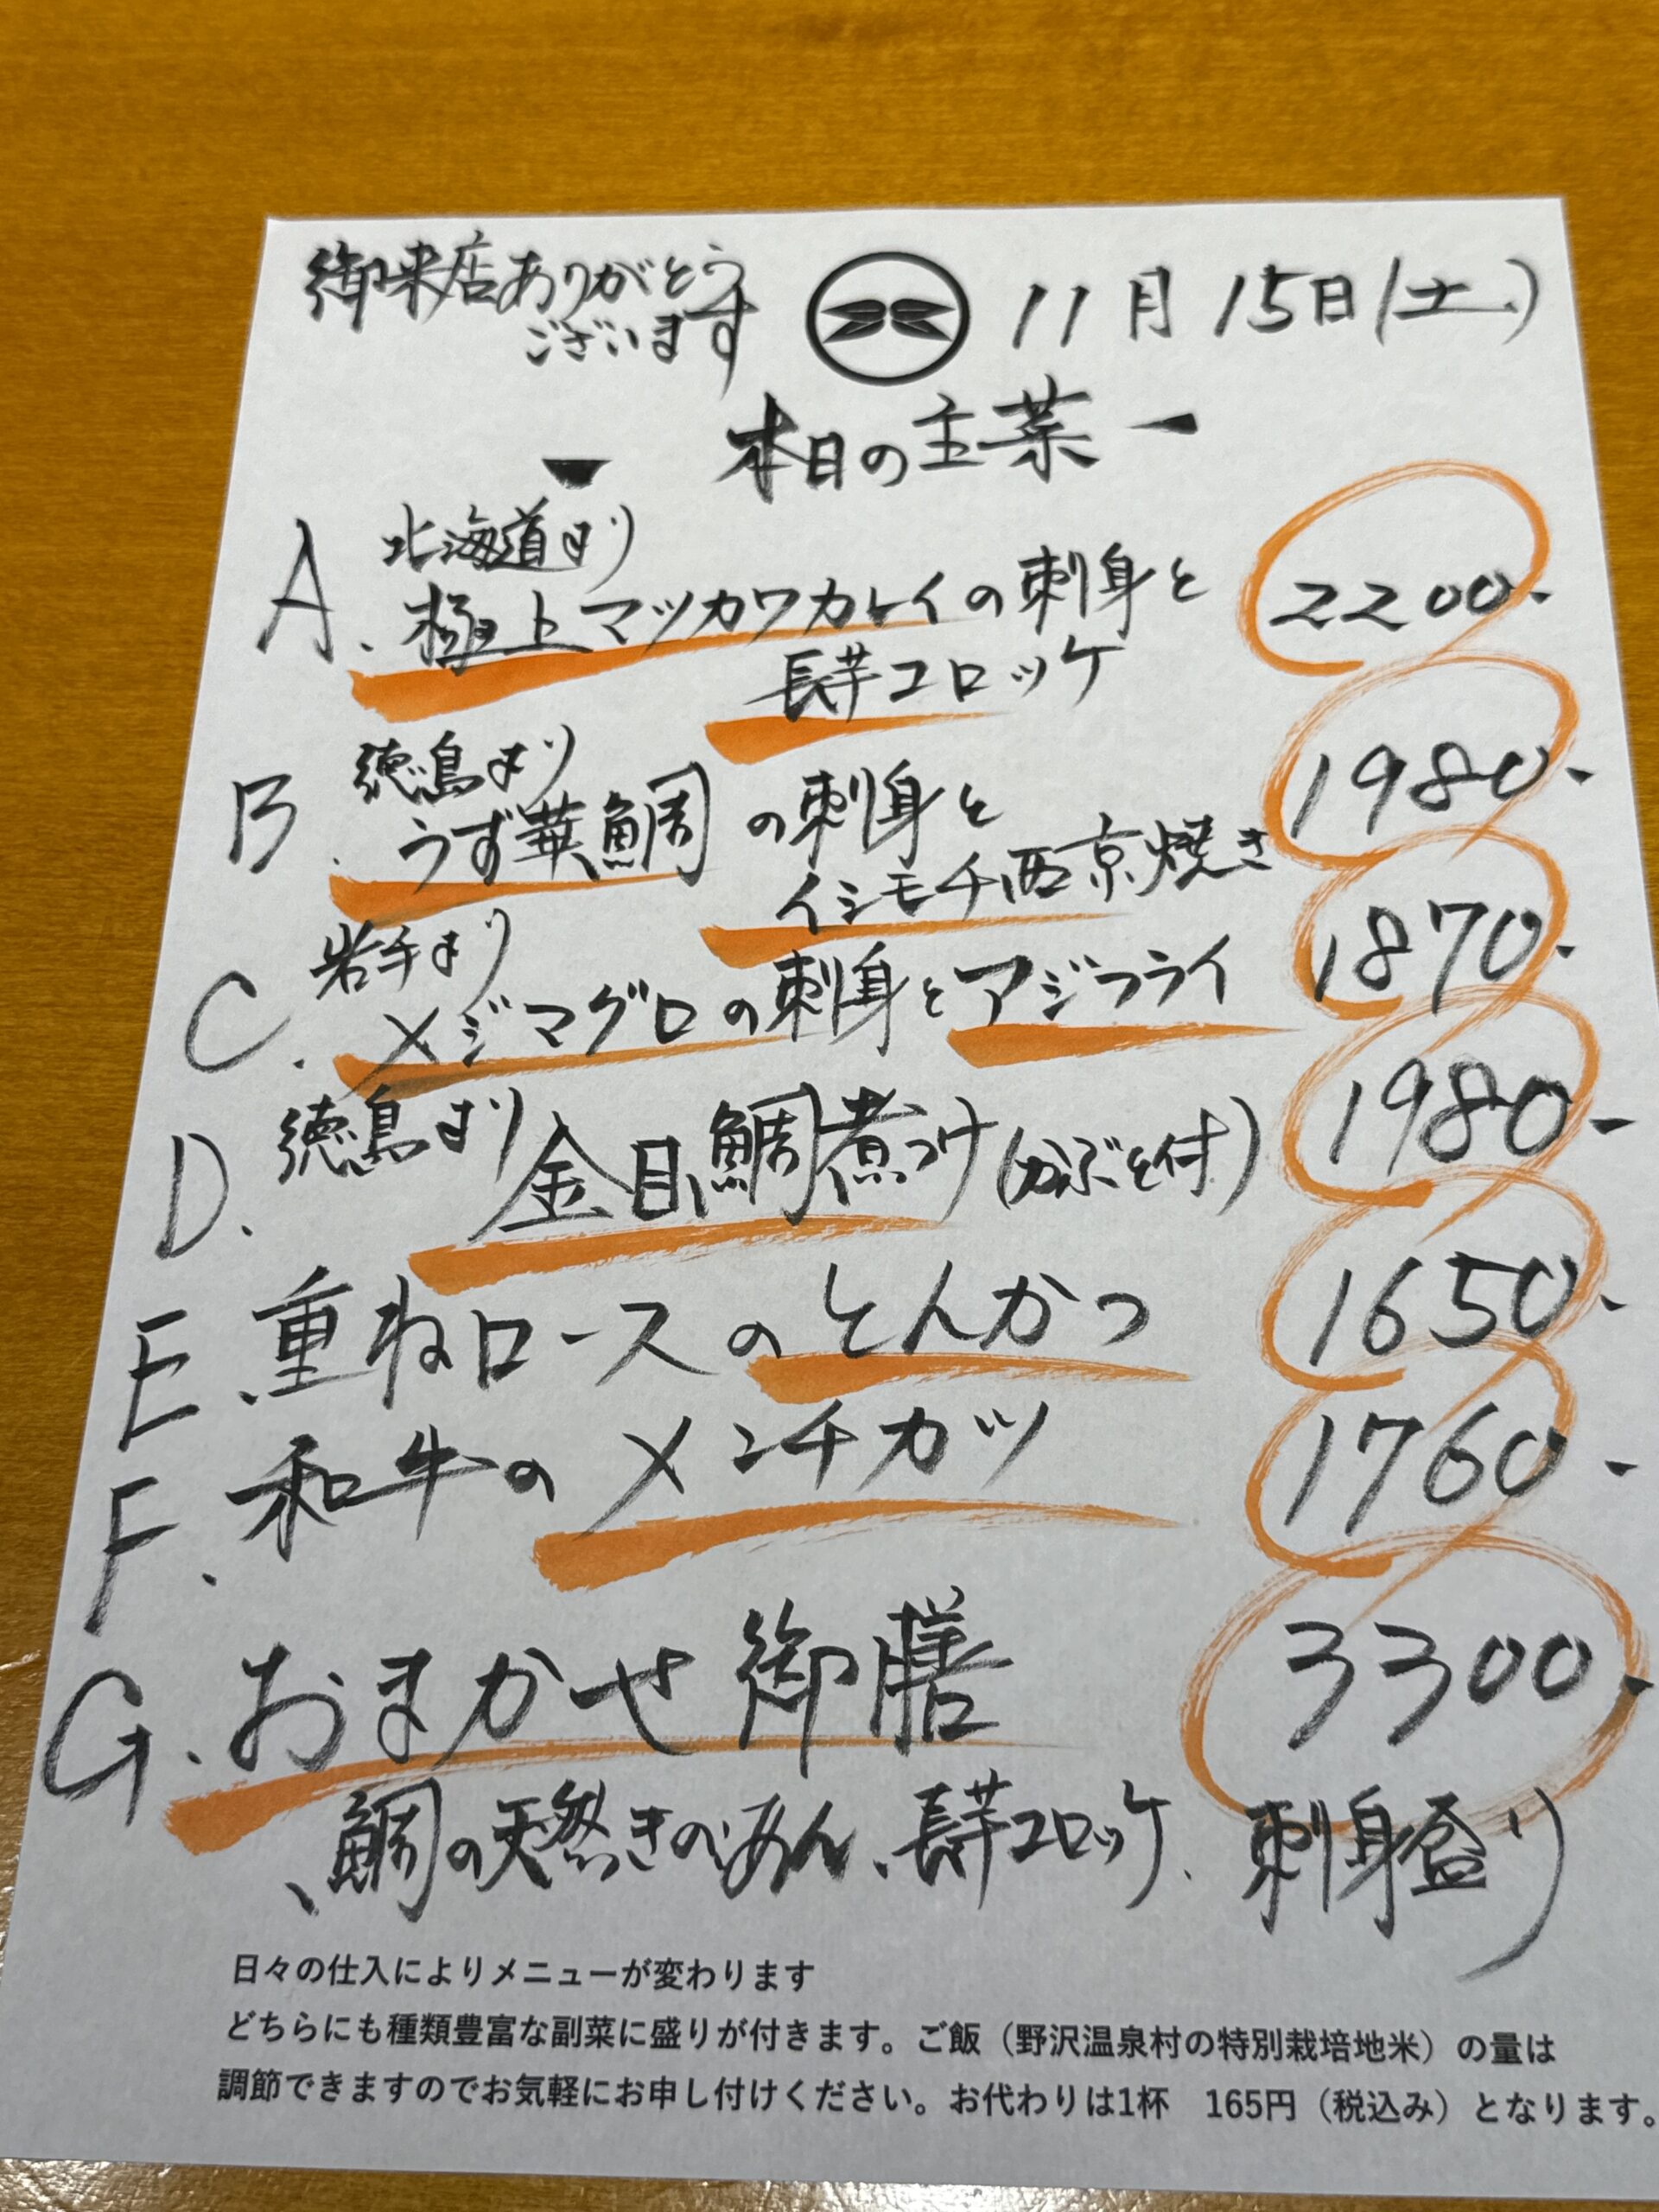 御来店ありがとう
ございます
11月15日(土)
ー 本日の主菜 ー
A. 北海道より
極上マツカワカレイの刺身と 2200-
長芋コロッケ
B. 徳島より
うず華鯛の刺身と 1980-
イシモチ西京焼き
C. 岩手より
メジマグロの刺身とアジフライ 1870-
D. 徳島より 金目鯛煮つけ(かぶと付) 1980-
E. 重ねロースのとんかつ 1650-
F. 和牛のメンチカツ 1760-
G. おまかせ御膳 3300-
、鯛の天然きのこあん、長芋コロッケ、刺身盛り
日々の仕入によりメニューが変わります
どちらにも種類豊富な副菜に盛りが付きます。ご飯（野沢温泉村の特別栽培地米）の量は
調節できますのでお気軽にお申し付けください。お代わりは1杯　165円（税込み）となります。